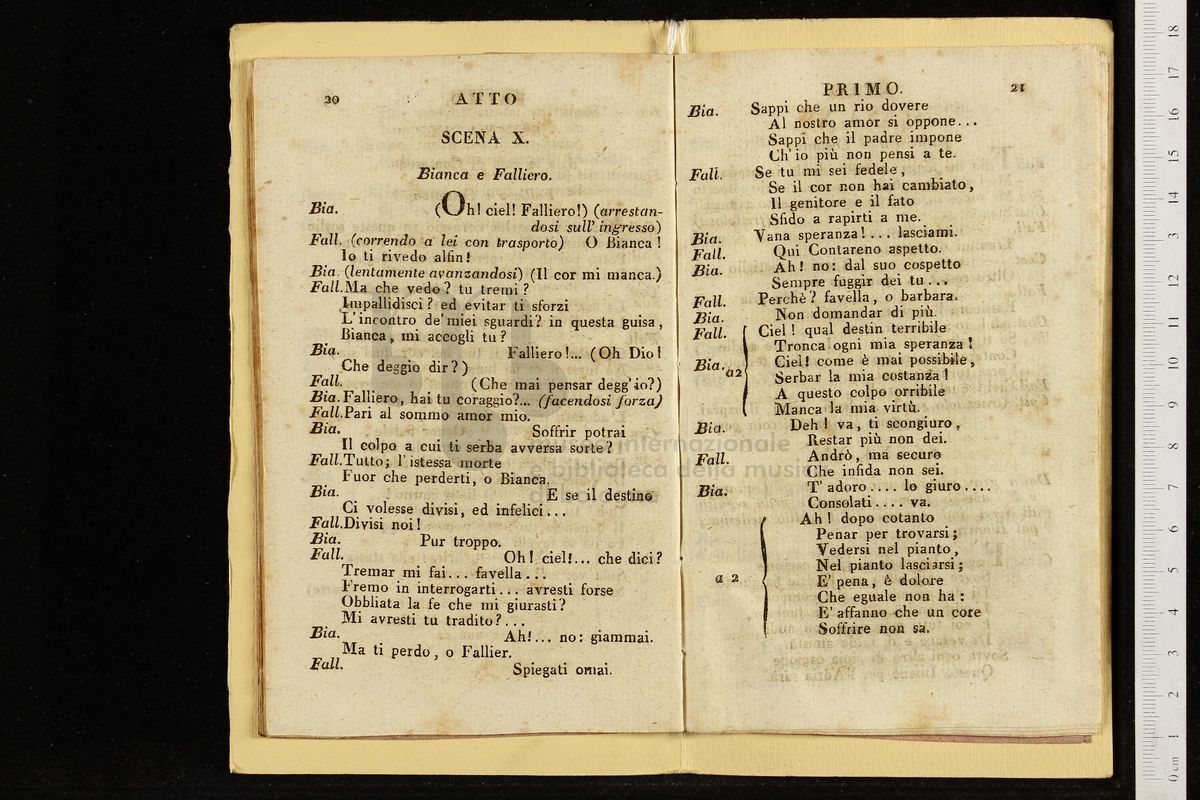 20 ATTO
SCENA X.
Bianca e Falliero.
Bia. (Oh! ciel! Falliero!) (arrestan-
dosi sull' ingresso)
Fall. (correndo a lei con trasporto) O Bianca!
Io ti rivedo alfin!
Bia. (lentamente avanzandosi) (Il cor mi manca.)
Fall. Ma che vedo? tu tremi?
Impallidisci? ed evitar ti sforzi
L'incontro de' miei sguardi? in questa guisa,
Bianca, mi accogli tu?
Bia. Falliero!... (Oh Dio!
Che deggio dir?)
Fall. (Che mai pensar degg'io?)
Bia. Falliero, hai tu coraggio?... (facendosi forza)
Fall. Pari al sommo amor mio.
Bia. Soffrir potrai
Il colpo a cui ti serba avversa sorte?
Fall. Tutto; l'istessa morte
Fuor che perderti, o Bianca.
Bia. E se il destino
Ci volesse divisi, ed infelici...
Fall. Divisi noi!
Bia. Pur troppo.
Fall. Oh! ciel!... che dici?
Tremar mi fai... favella...
Fremo in interrogarti... avresti forse
Obbliata la fe che mi giurasti?
Mi avresti tu tradito?...
Bia. Ah!... no: giammai.
Ma ti perdo, o Fallier.
Fall. Spiegati omai.
PRIMO. 21
Bia. Sappi che un rio dovere
Al nostro amor si oppone...
Sappi che il padre impone
Ch'io più non pensi a te.
Fall. Se tu mi sei fedele,
Se il cor non hai cambiato,
Il genitore e il fato
Sfido a rapirti a me.
Bia. Vana speranza!... lasciami.
Fall. Qui Contareno aspetto.
Bia. Ah! no: dal suo cospetto
Sempre fuggir dei tu...
Fall. Perchè? favella, o barbara.
Bia. Non domandar di più.
Fall. Ciel! qual destin terribile
Tronca ogni mia speranza!
Bia. a2 Ciel! come è mai possibile,
Serbar la mia costanza!
A questo colpo orribile
Manca la mia virtù.
Bia. Deh! va, ti scongiuro,
Restar più non dei.
Fall. Andrò, ma securo
Che infida non sei.
Bia. T'adoro.... lo giuro....
Consolati.... va.
Ah! dopo cotanto
Penar per trovarsi;
Vedersi nel pianto,
Nel pianto lasciarsi;
a 2 E' pena, è dolore
Che eguale non ha:
E' affanno che un core
Soffrire non sa.
museo internazionale
e biblioteca della musica
0 cm 1 2 3 4 5 6 7 8 9 10 11 12 13 14 15 16 17 18